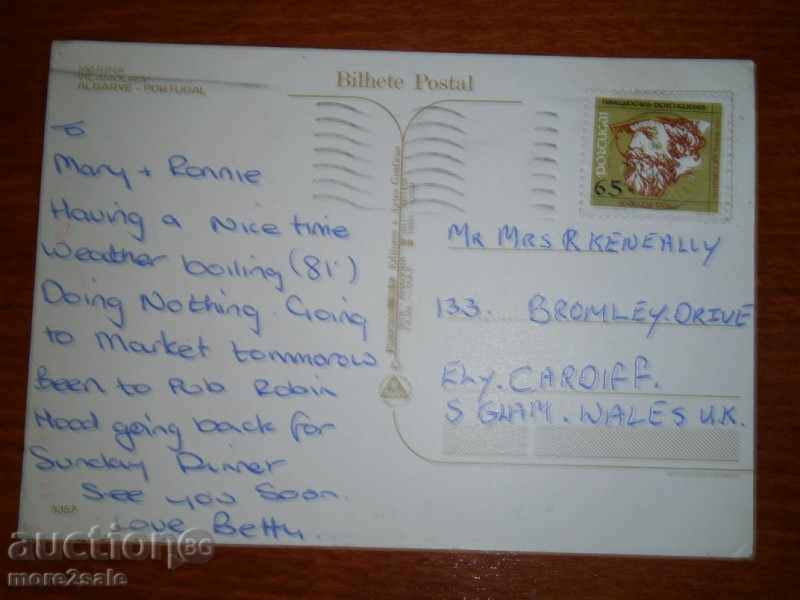 MARINA
VILAMOURA
ALGARVE - PORTUGAL
Bilhete Postal
PORTUGAL
6.5
To
Mary + Ronnie
Having a Nice time
Weather boiling (81°)
Doing Nothing. Going
to Market tommorow
Been to Pub Robin
Hood going back for
Sunday Dinner
See you Soon.
Love Betty.
MR MRS R. KENEALLY
133. BROMLEY. DRIVE
ELY. CARDIFF.
S GLAM. WALES U.K.
auction86
more2sale